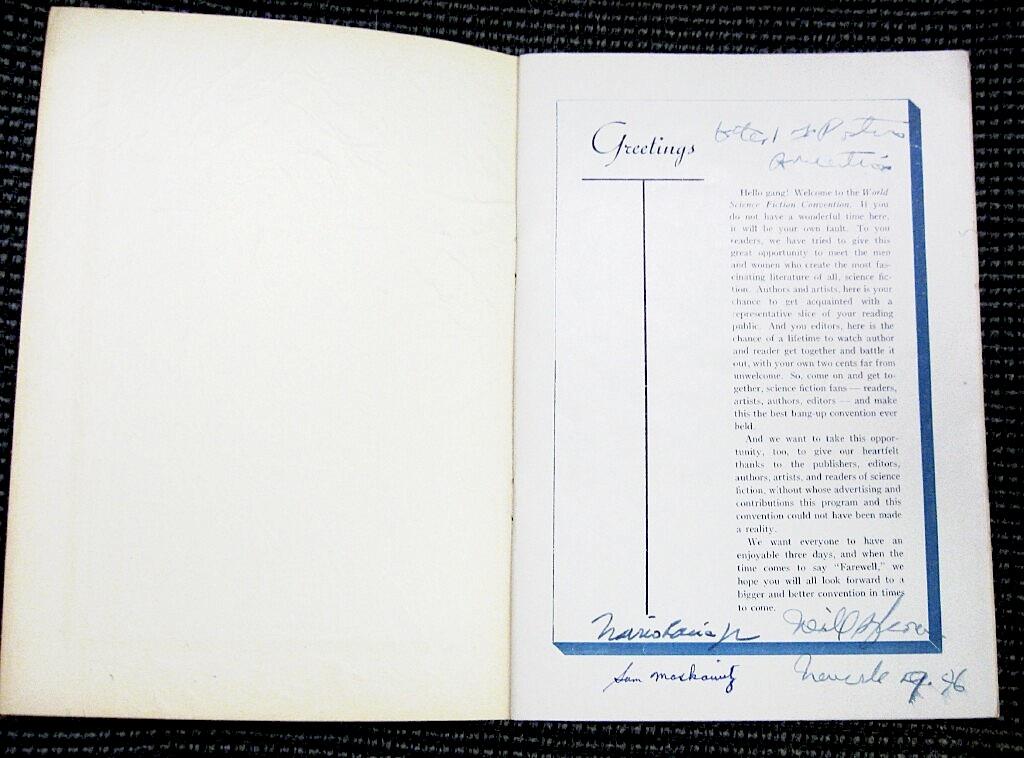 Greetings
Hello gang! Welcome to the World
Science Fiction Convention. If you
do not have a wonderful time here,
it will be your own fault. To you
readers, we have tried to give this
great opportunity to meet the men
and women who create the most fas-
cinating literature of all, science fic-
tion. Authors and artists, here is your
chance to get acquainted with a
representative slice of your reading
public. And you editors, here is the
chance of a lifetime to watch author
and reader get together and battle it
out, with your own two cents far from
unwelcome. So, come on and get to-
gether, science fiction fans — readers,
artists, authors, editors — and make
this the best bang-up convention ever
held.
And we want to take this oppor-
tunity, too, to give our heartfelt
thanks to the publishers, editors,
authors, artists, and readers of science
fiction, without whose advertising and
contributions this program and this
convention could not have been made
a reality.
We want everyone to have an
enjoyable three days, and when the
time comes to say "Farewell," we
hope you will all look forward to a
bigger and better convention in times
to come.
Sam Moskowitz